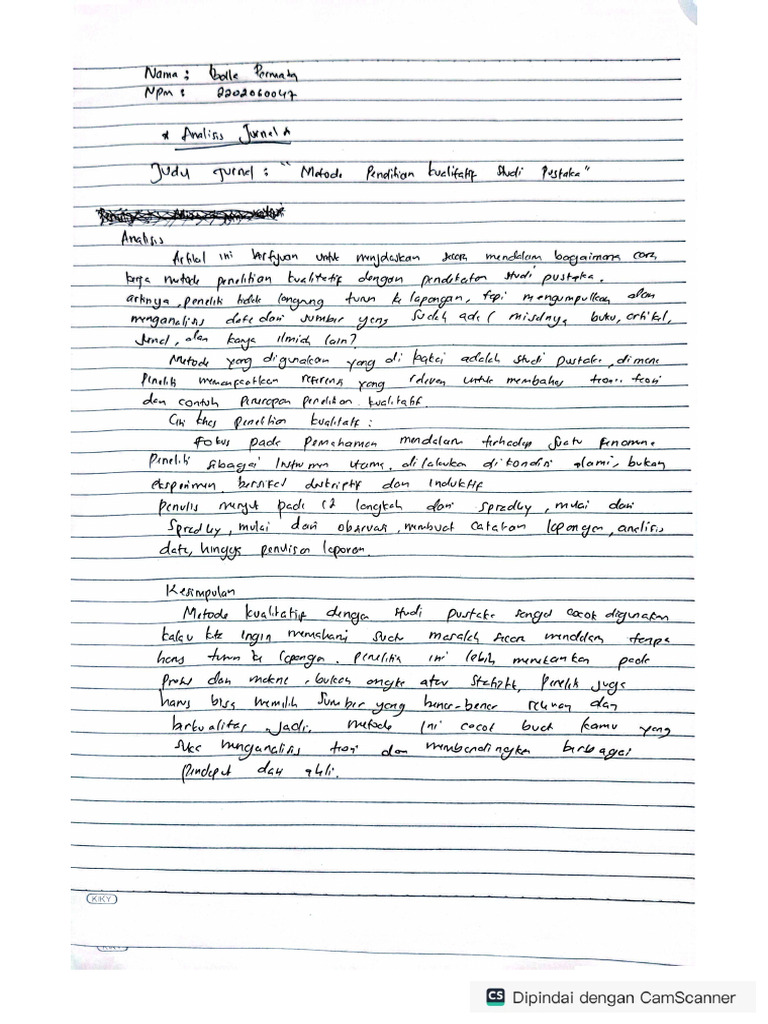 Nama : Permata
Npm : 2202060047
* Analisis Jurnal *
Judu Jurnal : "Metode Penelitian kualitatif Studi Pustaka"
Analisis
Artikel ini bertujuan untuk menjelaskan secara mendalam bagaimana cara
kerja metode penelitian kualitatif dengan pendekatan studi pustaka.
artinya, peneliti tidak langsung turun ke lapangan, tapi mengumpulkan dan
menganalisis data dari sumber yang sudah ada ( misalnya, buku, artikel,
Jurnal, dan karya ilmiah lain?
Metode yang digunakan yang di pakai adalah studi pustaka, dimana
Peneliti memanfaatkan referensi yang relevan untuk membahas teori-teori
dan contoh Penerapan penelitian kualitatif.
Ciri khas penelitian kualitatif :
Fokus pada Pemahaman mendalam terhadap suatu fenomena
Peneliti sebagai Instrumen utama, dilakukan di kondisi alami, bukan
eksperimen. bersifat deskriptif dan Induktif
penulis merujuk pada 12 langkah dari Spredley, mulai dari
Spredley, mulai dari observasi, membuat catatan lapangan, analisis
data, hingga penulisan laporan.
Kesimpulan
Metode kualitatif dengan studi pustaka sangat cocok digunakan
kalau kita Ingin memahami suatu masalah secara mendalam tanpa
harus turun ke lapangan. penelitian ini lebih menekankan pada
proses dan makna, bukan angka atau statistik, peneliti juga
harus bisa memilih sumber yang benar-benar relevan dan
berkualitas. Jadi, metode Ini cocok buat kamu yang
suka menganalisis teori dan membandingkan berbagai
pendapat dari ahli.
KIKY
CS Dipindai dengan CamScanner